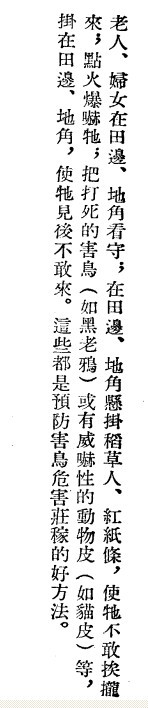 老人、婦女在田邊、地角看守；在田邊、地角懸掛稻草人、紅紙條，使牠不敢挨攏
來；點火爆嚇牠；把打死的害鳥（如黑老鴉）或有威嚇性的動物皮（如貓皮）等，
掛在田邊、地角，使牠見後不敢來。這些都是預防害鳥危害莊稼的好方法。